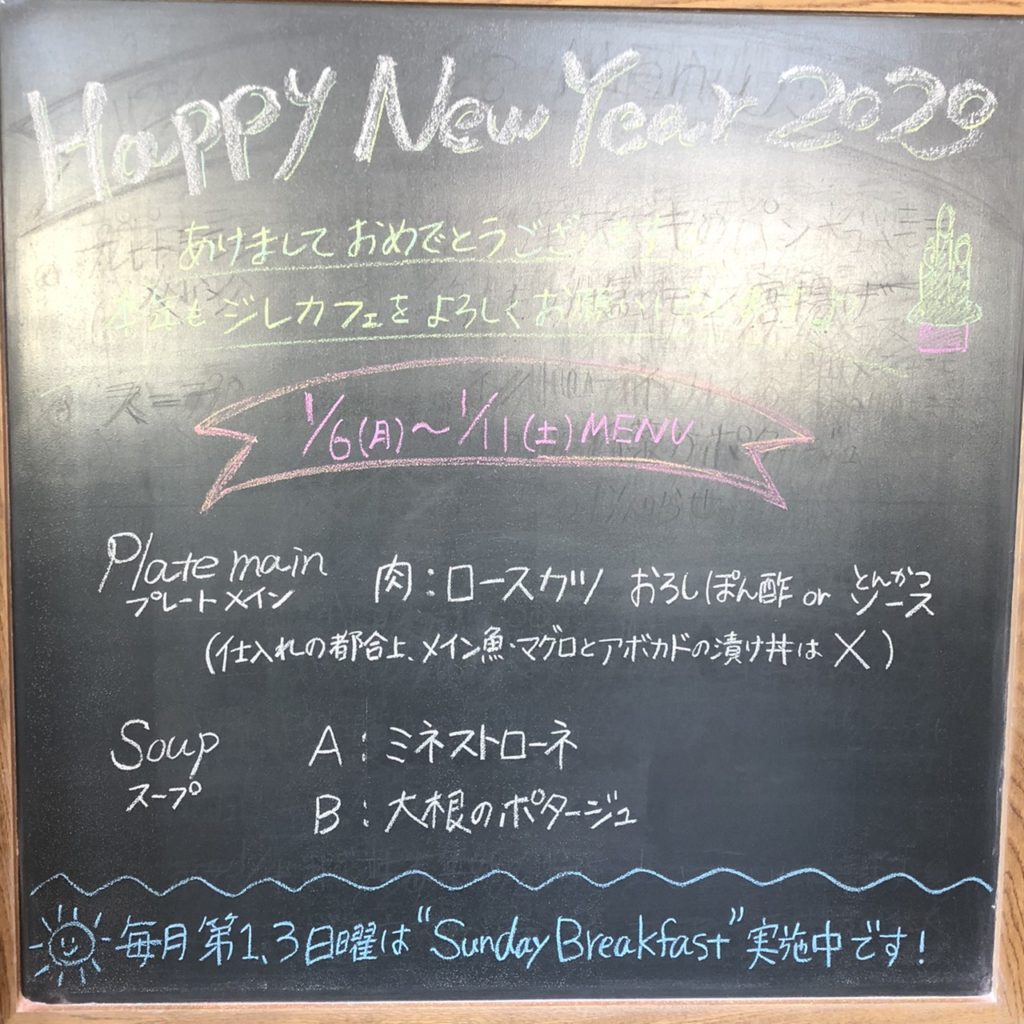 Happy New Year 2020
あけましておめでとうございます
本年もジレカフェをよろしくお願いします
1/6(月)〜1/11(土)MENU
Plate main 肉:ロースカツ おろしぽん酢 or とんかつソース
プレートメイン
(仕入れの都合上、メイン魚・マグロとアボカドの漬け丼は✕)
Soup A:ミネストローネ
スープ
B:大根のポタージュ
毎月第1、3日曜は“Sunday Breakfast”実施中です!